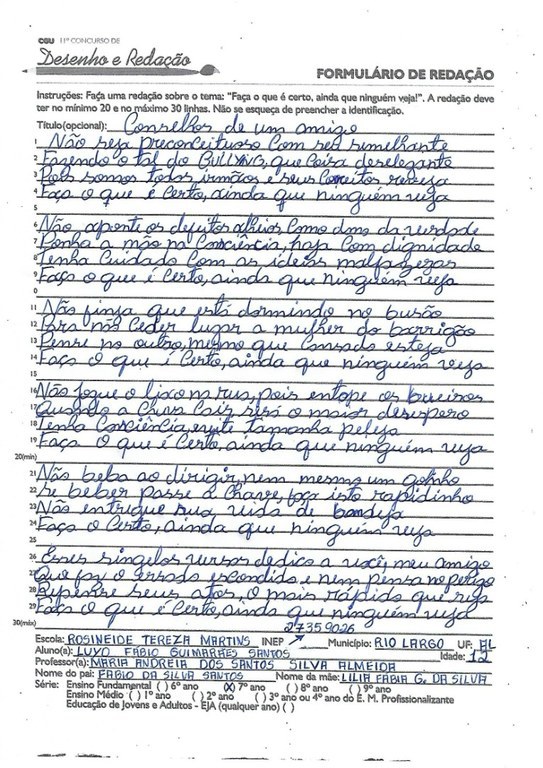 CGU 11º CONCURSO DE
Desenho e Redação
FORMULÁRIO DE REDAÇÃO
Instruções: Faça uma redação sobre o tema: "Faça o que é certo, ainda que ninguém veja!". A redação deve
ter no mínimo 20 e no máximo 30 linhas. Não se esqueça de preencher a identificação.
Título(opcional): Conselhos de um amigo
1 Não seja preconceituoso com seu semelhante
2 Fazendo o tal do BULLYING, que coisa deselegante
3 Pois somos todos irmãos e seus conceitos reveja
4 Faça o que é certo, ainda que ninguém veja
5
6 Não aponte os defeitos alheios, como dono da verdade
7 Ponha a mão na consciência, haja com dignidade
8 Tenha cuidado com as ideias malfazejas
9 Faça o que é certo, ainda que ninguém veja
0
11 Não finja que está dormindo no busão
12 Para não ceder lugar a mulher do barrigão
13 Pense no outro, mesmo que cansado esteja
14 Faça o que é certo, ainda que ninguém veja
15
16 Não jogue o lixo na rua, pois entope os bueiros
17 Quando a chuva cair será o maior desespero
18 Tenha consciência, evite tamanha peleja
19 Faça o que é certo, ainda que ninguém veja
20(min)
21 Não beba ao dirigir, nem mesmo um golinho
22 Se beber passe a chave, faça isto rapidinho
23 Não entregue sua vida de bandeja
24 Faça o certo, ainda que ninguém veja
25
26 Esses singelos versos dedico a você, meu amigo
27 Que faz o errado escondido e nem pensa no perigo
28 Repense seus atos, o mais rápido que seja
29 Faça o que é certo, ainda que ninguém veja
30(máx)
27359026
Escola: ROSINEIDE TEREZA MARTINS INEP Município: RIO LARGO UF: AL
Aluno(a): LUVO FÁBIO GUIMARÃES SANTOS Idade: 12
Professor(a): MARIA ANDREIA DOS SANTOS SILVA ALMEIDA
Nome do pai: FÁBIO DA SILVA SANTOS Nome da mãe: LILIA FABIA G. DA SILVA
Série: Ensino Fundamental ( ) 6º ano (X) 7º ano ( ) 8º ano ( ) 9º ano
Ensino Médio ( ) 1º ano ( ) 2º ano ( ) 3º ano ou 4º ano do E. M. Profissionalizante
Educação de Jovens e Adultos - EJA (qualquer ano) ( )